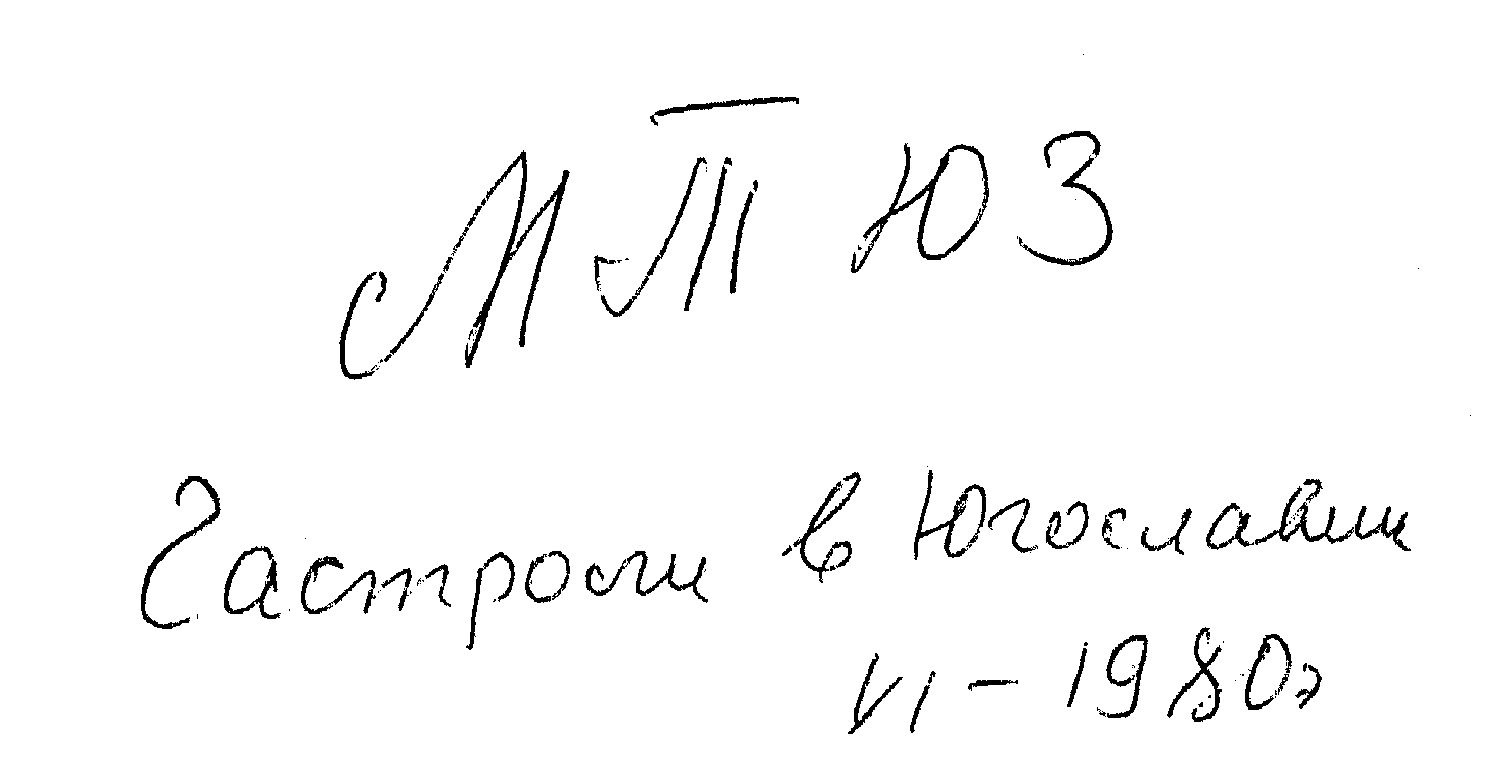 МТЮЗ
Гастроли в Югославии
VI - 1980г